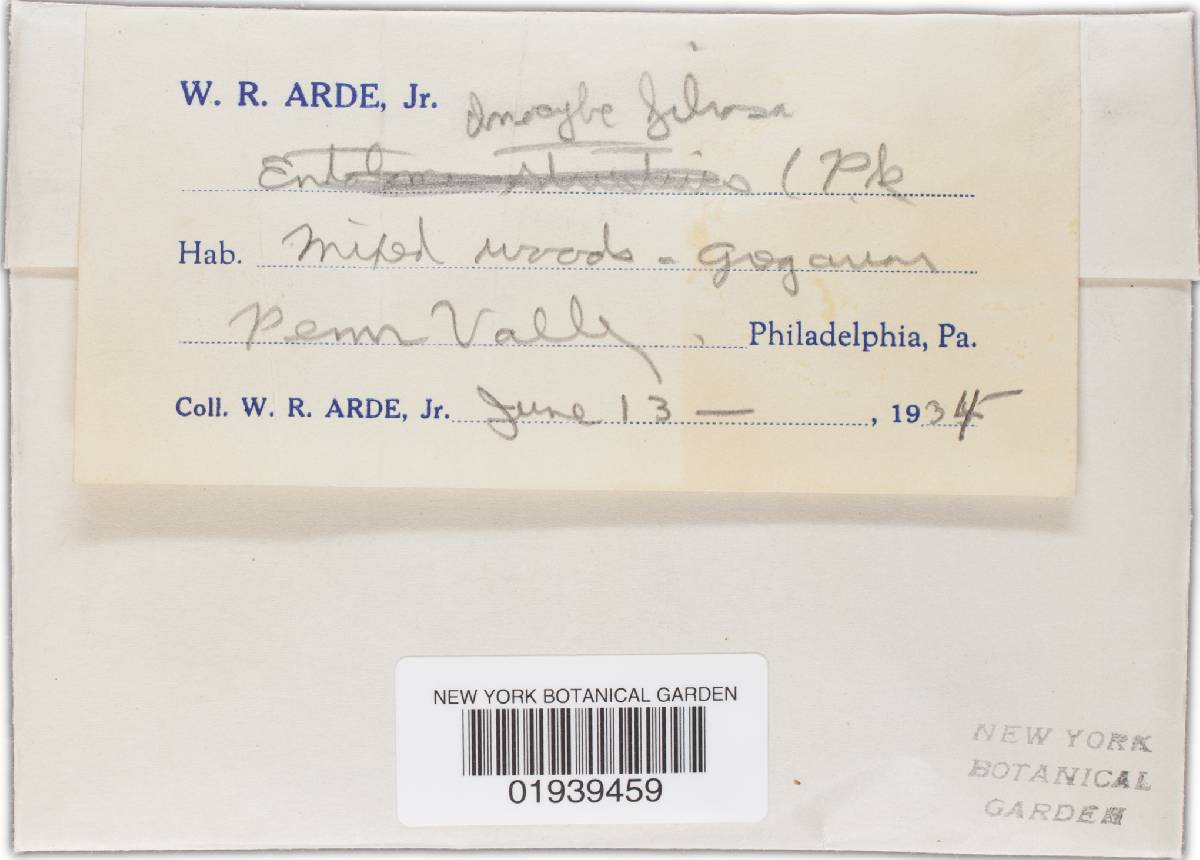 W. R. ARDE, Jr. Inocybe
Entoloma (Pk
Hab. Mixed woods -
Penn Valley, Philadelphia, Pa.
Coll. W. R. ARDE, Jr. June 13 — , 1934
NEW YORK BOTANICAL GARDEN
01939459
NEW YORK
BOTANICAL
GARDEN